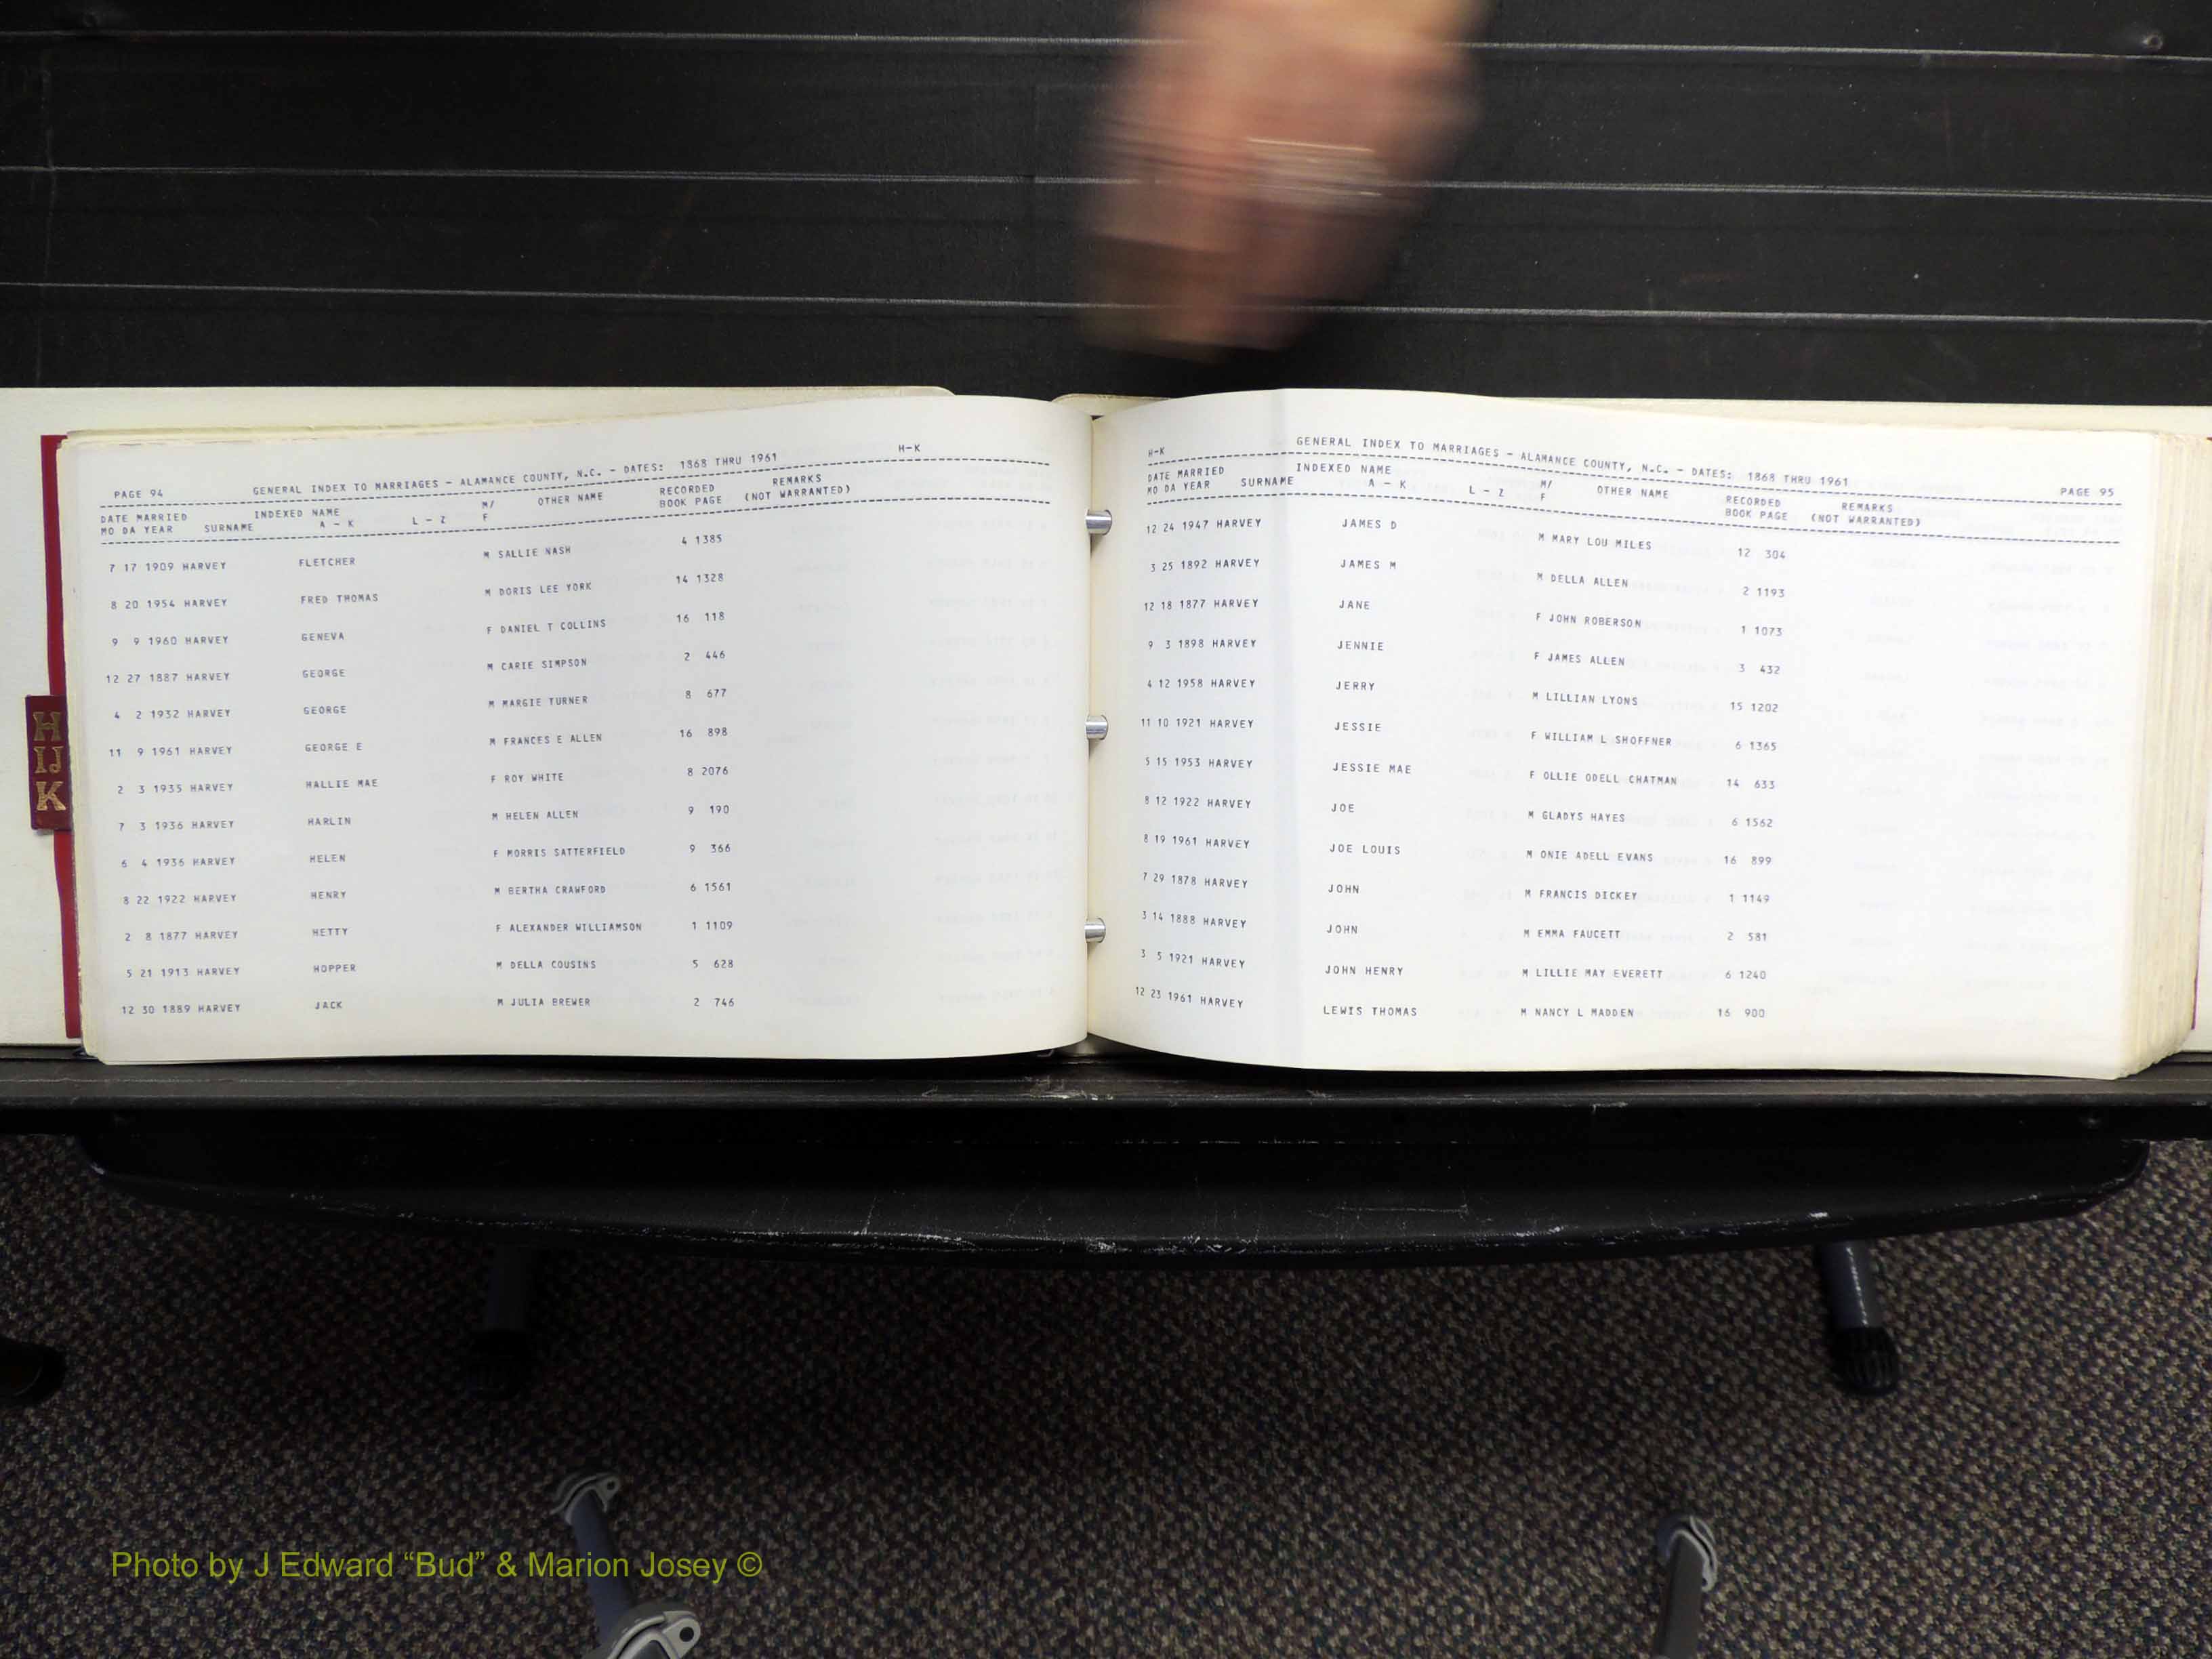 H-K
PAGE 94 GENERAL INDEX TO MARRIAGES - ALAMANCE COUNTY, N.C. - DATES: 1868 THRU 1961
DATE MARRIED INDEXED NAME M/ OTHER NAME RECORDED REMARKS
MO DA YEAR SURNAME A - K L - Z F BOOK PAGE (NOT WARRANTED)
7 17 1909 HARVEY FLETCHER M SALLIE NASH 4 1385
8 20 1954 HARVEY FRED THOMAS M DORIS LEE YORK 14 1328
9 9 1960 HARVEY GENEVA F DANIEL T COLLINS 16 118
12 27 1887 HARVEY GEORGE M CARIE SIMPSON 2 446
4 2 1932 HARVEY GEORGE M MARGIE TURNER 8 677
11 9 1961 HARVEY GEORGE E M FRANCES E ALLEN 16 898
2 3 1935 HARVEY HALLIE MAE F ROY WHITE 8 2076
7 3 1936 HARVEY HARLIN M HELEN ALLEN 9 190
6 4 1936 HARVEY HELEN F MORRIS SATTERFIELD 9 366
8 22 1922 HARVEY HENRY M BERTHA CRAWFORD 6 1561
2 8 1877 HARVEY HETTY F ALEXANDER WILLIAMSON 1 1109
5 21 1913 HARVEY HOPPER M DELLA COUSINS 5 628
12 30 1889 HARVEY JACK M JULIA BREWER 2 746
H
IJ
K
H-K GENERAL INDEX TO MARRIAGES - ALAMANCE COUNTY, N.C. - DATES: 1868 THRU 1961 PAGE 95
DATE MARRIED INDEXED NAME M/ OTHER NAME RECORDED REMARKS
MO DA YEAR SURNAME A - K L - Z F BOOK PAGE (NOT WARRANTED)
12 24 1947 HARVEY JAMES D M MARY LOU MILES 12 304
3 25 1892 HARVEY JAMES M M DELLA ALLEN 2 1193
12 18 1877 HARVEY JANE F JOHN ROBERSON 1 1073
9 3 1898 HARVEY JENNIE F JAMES ALLEN 3 432
4 12 1958 HARVEY JERRY M LILLIAN LYONS 15 1202
11 10 1921 HARVEY JESSIE F WILLIAM L SHOFFNER 6 1365
5 15 1953 HARVEY JESSIE MAE F OLLIE ODELL CHATMAN 14 633
8 12 1922 HARVEY JOE M GLADYS HAYES 6 1562
8 19 1961 HARVEY JOE LOUIS M ONIE ADELL EVANS 16 899
7 29 1878 HARVEY JOHN M FRANCIS DICKEY 1 1149
3 14 1888 HARVEY JOHN M EMMA FAUCETT 2 581
3 5 1921 HARVEY JOHN HENRY M LILLIE MAY EVERETT 6 1240
12 23 1961 HARVEY LEWIS THOMAS M NANCY L MADDEN 16 900
Photo by J Edward “Bud” & Marion Josey ©